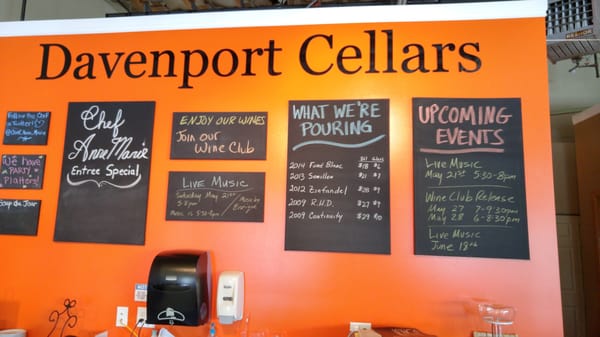 Davenport Cellars
Follow the Chef
on Twitter!
@Chef_Anne_Marie
We HAVE
PARTY
Platters!
Soup du Jour
Chef
AnneMarie
Entree Special
ENJOY OUR WINES
Join our
Wine Club
Live Music
Saturday May 21st
5-8pm
Music is 5:30-8pm
Music by
WHAT WE'RE
POURING
Btl Glass
2014 Fumé Blanc $18 $6
2013 Semillon $21 $7
2012 Zinfandel $28 $9
2009 R.H.D. $27 $9
2009 Continuity $29 $10
UPCOMING
EVENTS
Live Music
May 21st 5:30-8pm
Wine Club Release
May 27 7-9:30pm
May 28 6-8:30pm
Live Music
June 18th